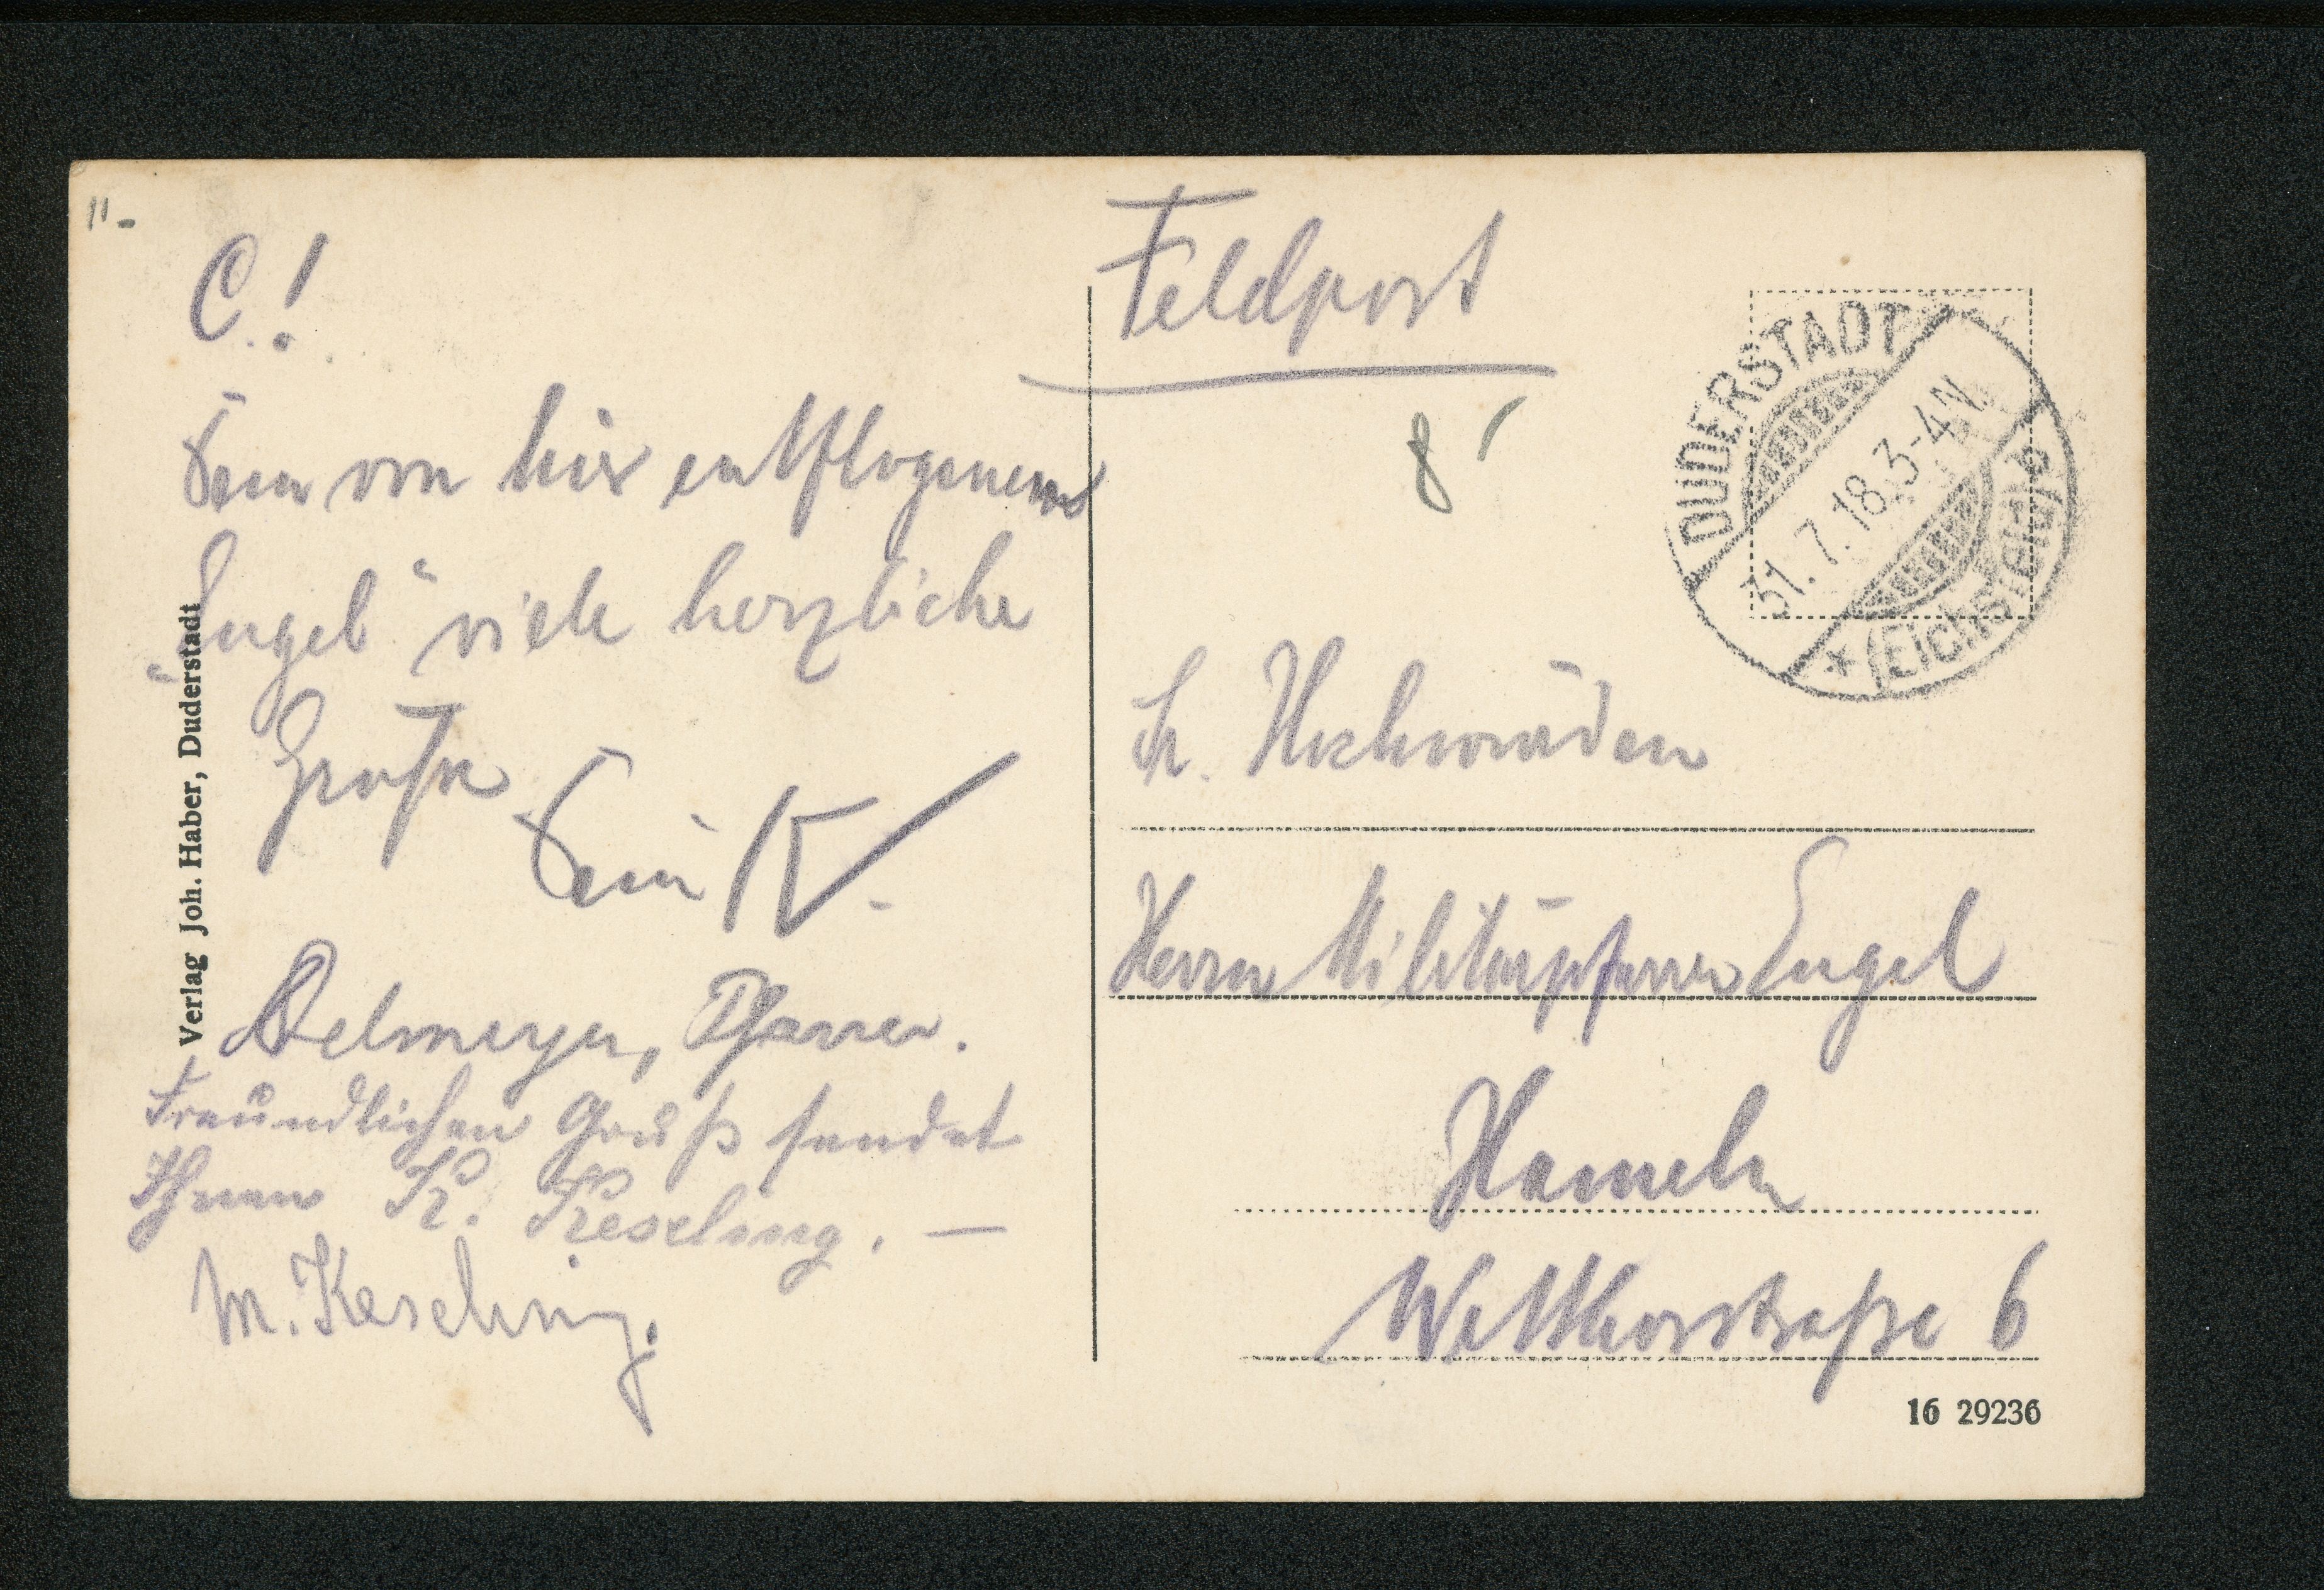 11-
C!
Dem von hier entflogenen
„Engel“ viele herzliche
Grüße
Dein K.
Delmeyer, Pfarrer.
Freundlichen Gruß sendet
Ihnen K. Keseling. —
M. Keseling.
Verlag Joh. Haber, Duderstadt
Feldpost
8
DUDERSTADT
31.7.18.3-4N.
* (Eichsfeld)
Sr. Hochwürden
Herrn Militärpfarrer Engel
Hameln
Wettborstraße 6
16 29236